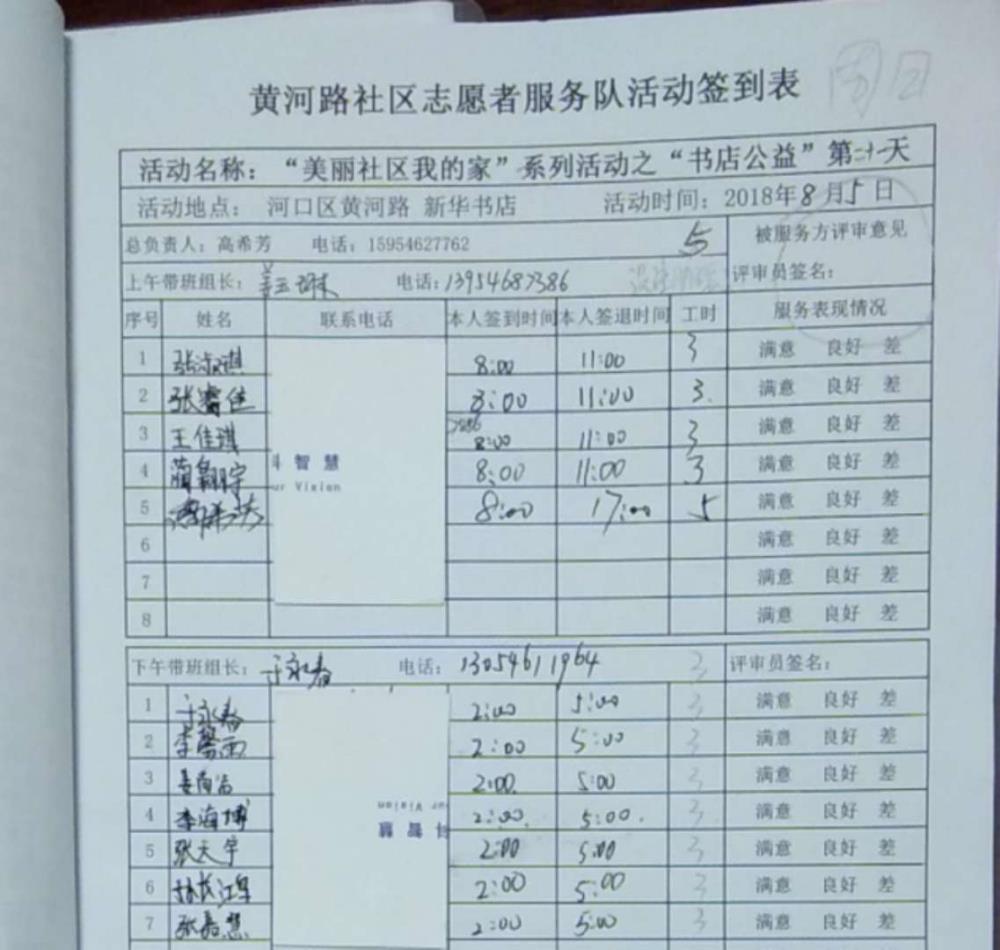 周日
黄河路社区志愿者服务队活动签到表
活动名称：“美丽社区我的家”系列活动之“书店公益”第二十一天
活动地点： 河口区黄河路 新华书店 活动时间：2018年8月5日
总负责人：高希芳 电话：15954627762 5 被服务方评审意见
上午带班组长： 电话：13954687386 评审员签名：
序号 姓名 联系电话 本人签到时间 本人签退时间 工时 服务表现情况
1 张淑琪 8:00 11:00 3 满意 良好 差
2 张睿佳 8:00 11:00 3. 满意 良好 差
3 王佳琪 8:00 11:00 3 满意 良好 差
4 8:00 11:00 3 满意 良好 差
智慧
ur Vision
5 8:00 17:00 5 满意 良好 差
6 满意 良好 差
7 满意 良好 差
8 满意 良好 差
下午带班组长：于永春 电话：13054611964 3 评审员签名：
1 于永春 2:00 5:00 3 满意 良好 差
2 李馨雨 2:00 5:00 3 满意 良好 差
3 2:00 5:00 3 满意 良好 差
4 李海博 2:00. 5:00. 3 满意 良好 差
ur Vision
慧
5 张天宇 2:00 5:00 3 满意 良好 差
6 2:00 5:00 3 满意 良好 差
7 张嘉慧 2:00 5:00 3 满意 良好 差